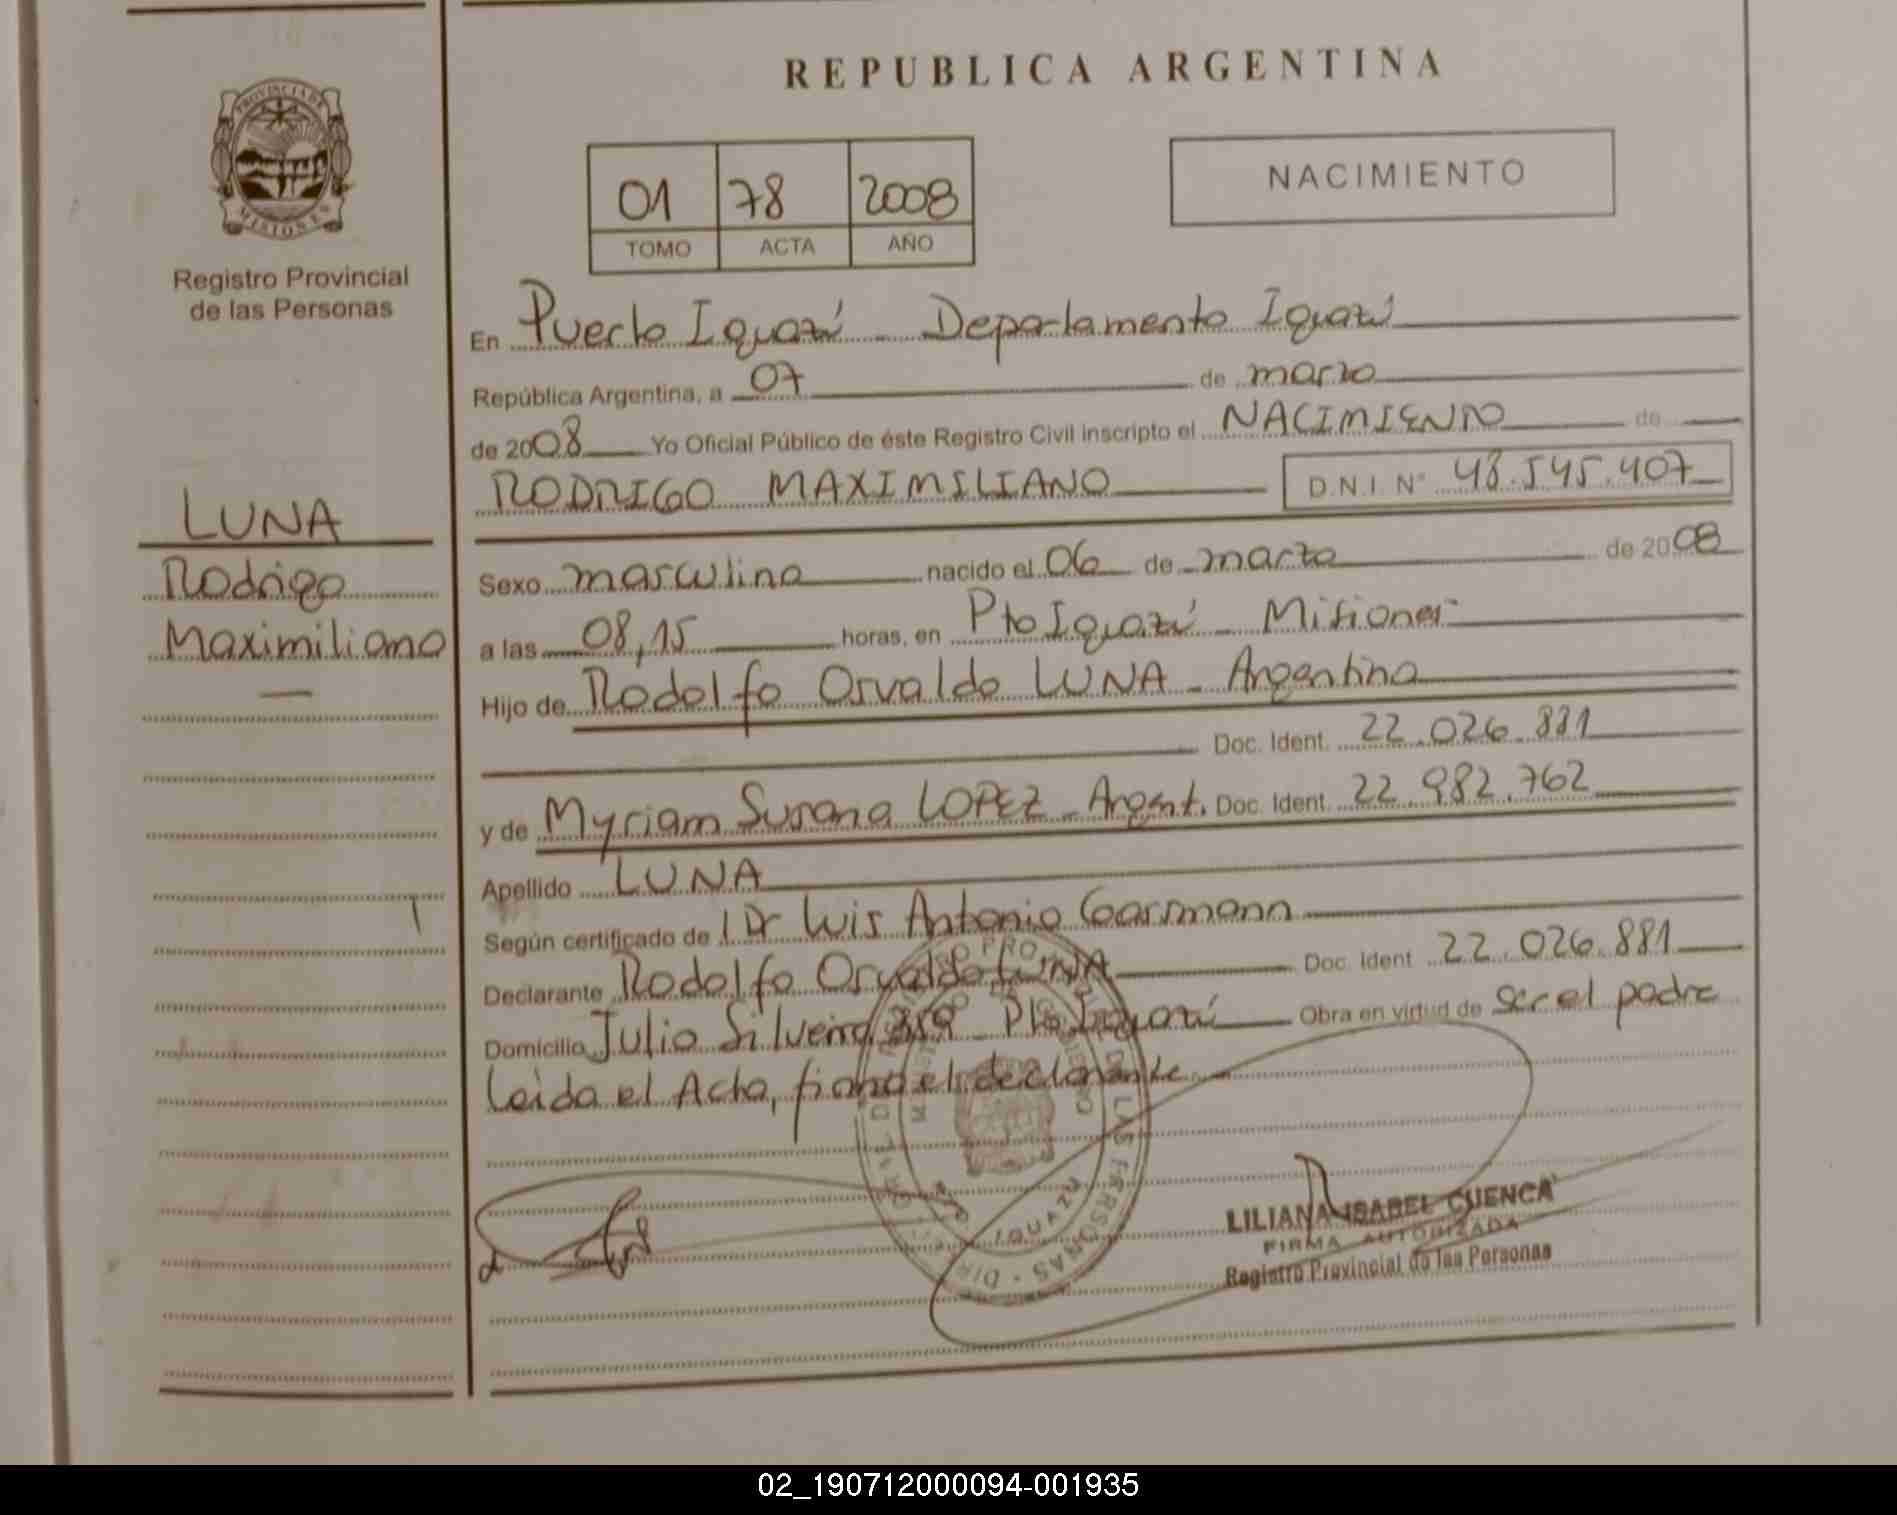 REPUBLICA ARGENTINA
PROVINCIA DE
MISIONES
Registro Provincial
de las Personas
01 78 2008
TOMO ACTA AÑO
NACIMIENTO
En Puerto Iguazú - Departamento Iguazú
República Argentina, a 07 de marzo
de 2008 Yo Oficial Público de éste Registro Civil inscripto el NACIMIENTO de
RODRIGO MAXIMILIANO D.N.I. N° 48.545.407
LUNA
Rodrigo
Maximiliano
Sexo masculino nacido el 06 de marzo de 2008
a las 08,15 horas, en Pto Iguazú - Misiones
Hijo de Rodolfo Osvaldo LUNA - Argentino
Doc. Ident. 22.026.881
y de Myriam Susana LOPEZ - Argent. Doc. Ident. 22.982.762
Apellido LUNA
Según certificado de Dr Luis Antonio
Declarante Rodolfo Osvaldo LUNA Doc. Ident. 22.026.881
Domicilio Julio Silveira 359 - Pto Iguazú Obra en virtud de ser el padre
Leida el Acta, firma el declarante
IGUAZU
LILIANA ISABEL CUENCA
FIRMA AUTORIZADA
Registro Provincial de las Personas
02_190712000094-001935